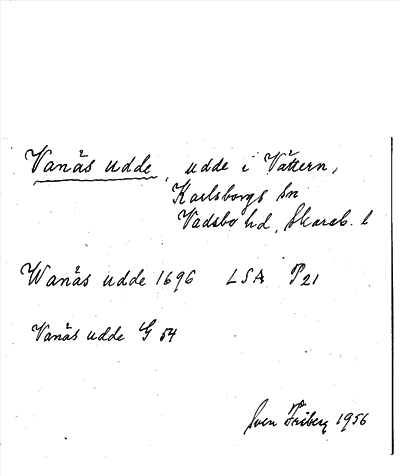 Vanäs udde, udde i Vättern,
Karlsborgs sn
Vadsbo hd, Skarab. l
Wanäs udde 1696 LSA P21
Vanäs udde G 54
Sven Friberg 1956